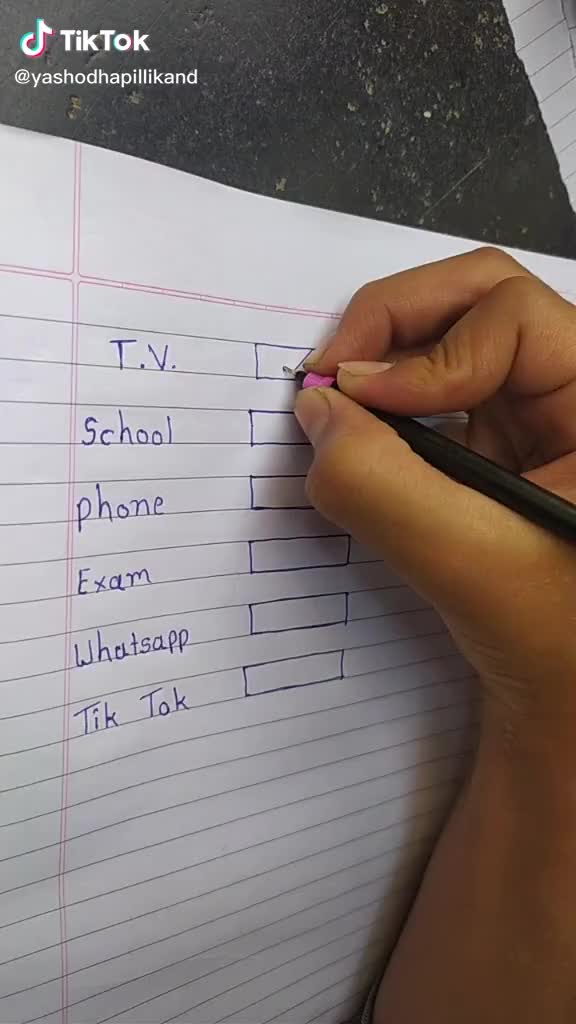 TikTok
@yashodhapillikand
T.V.
School
phone
Exam
Whatsapp
Tik Tok